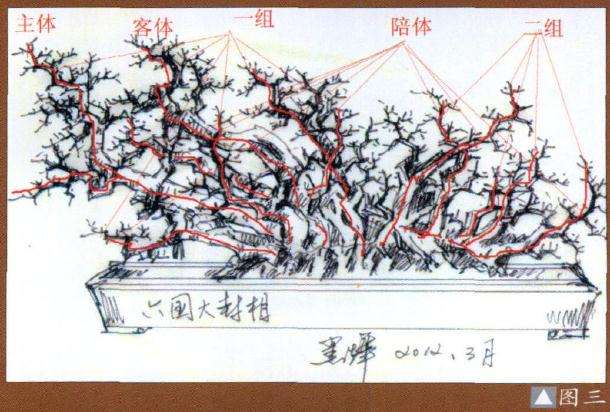 主体 客体 一组 陪体 二组
六国大封相
2012.3月
图三